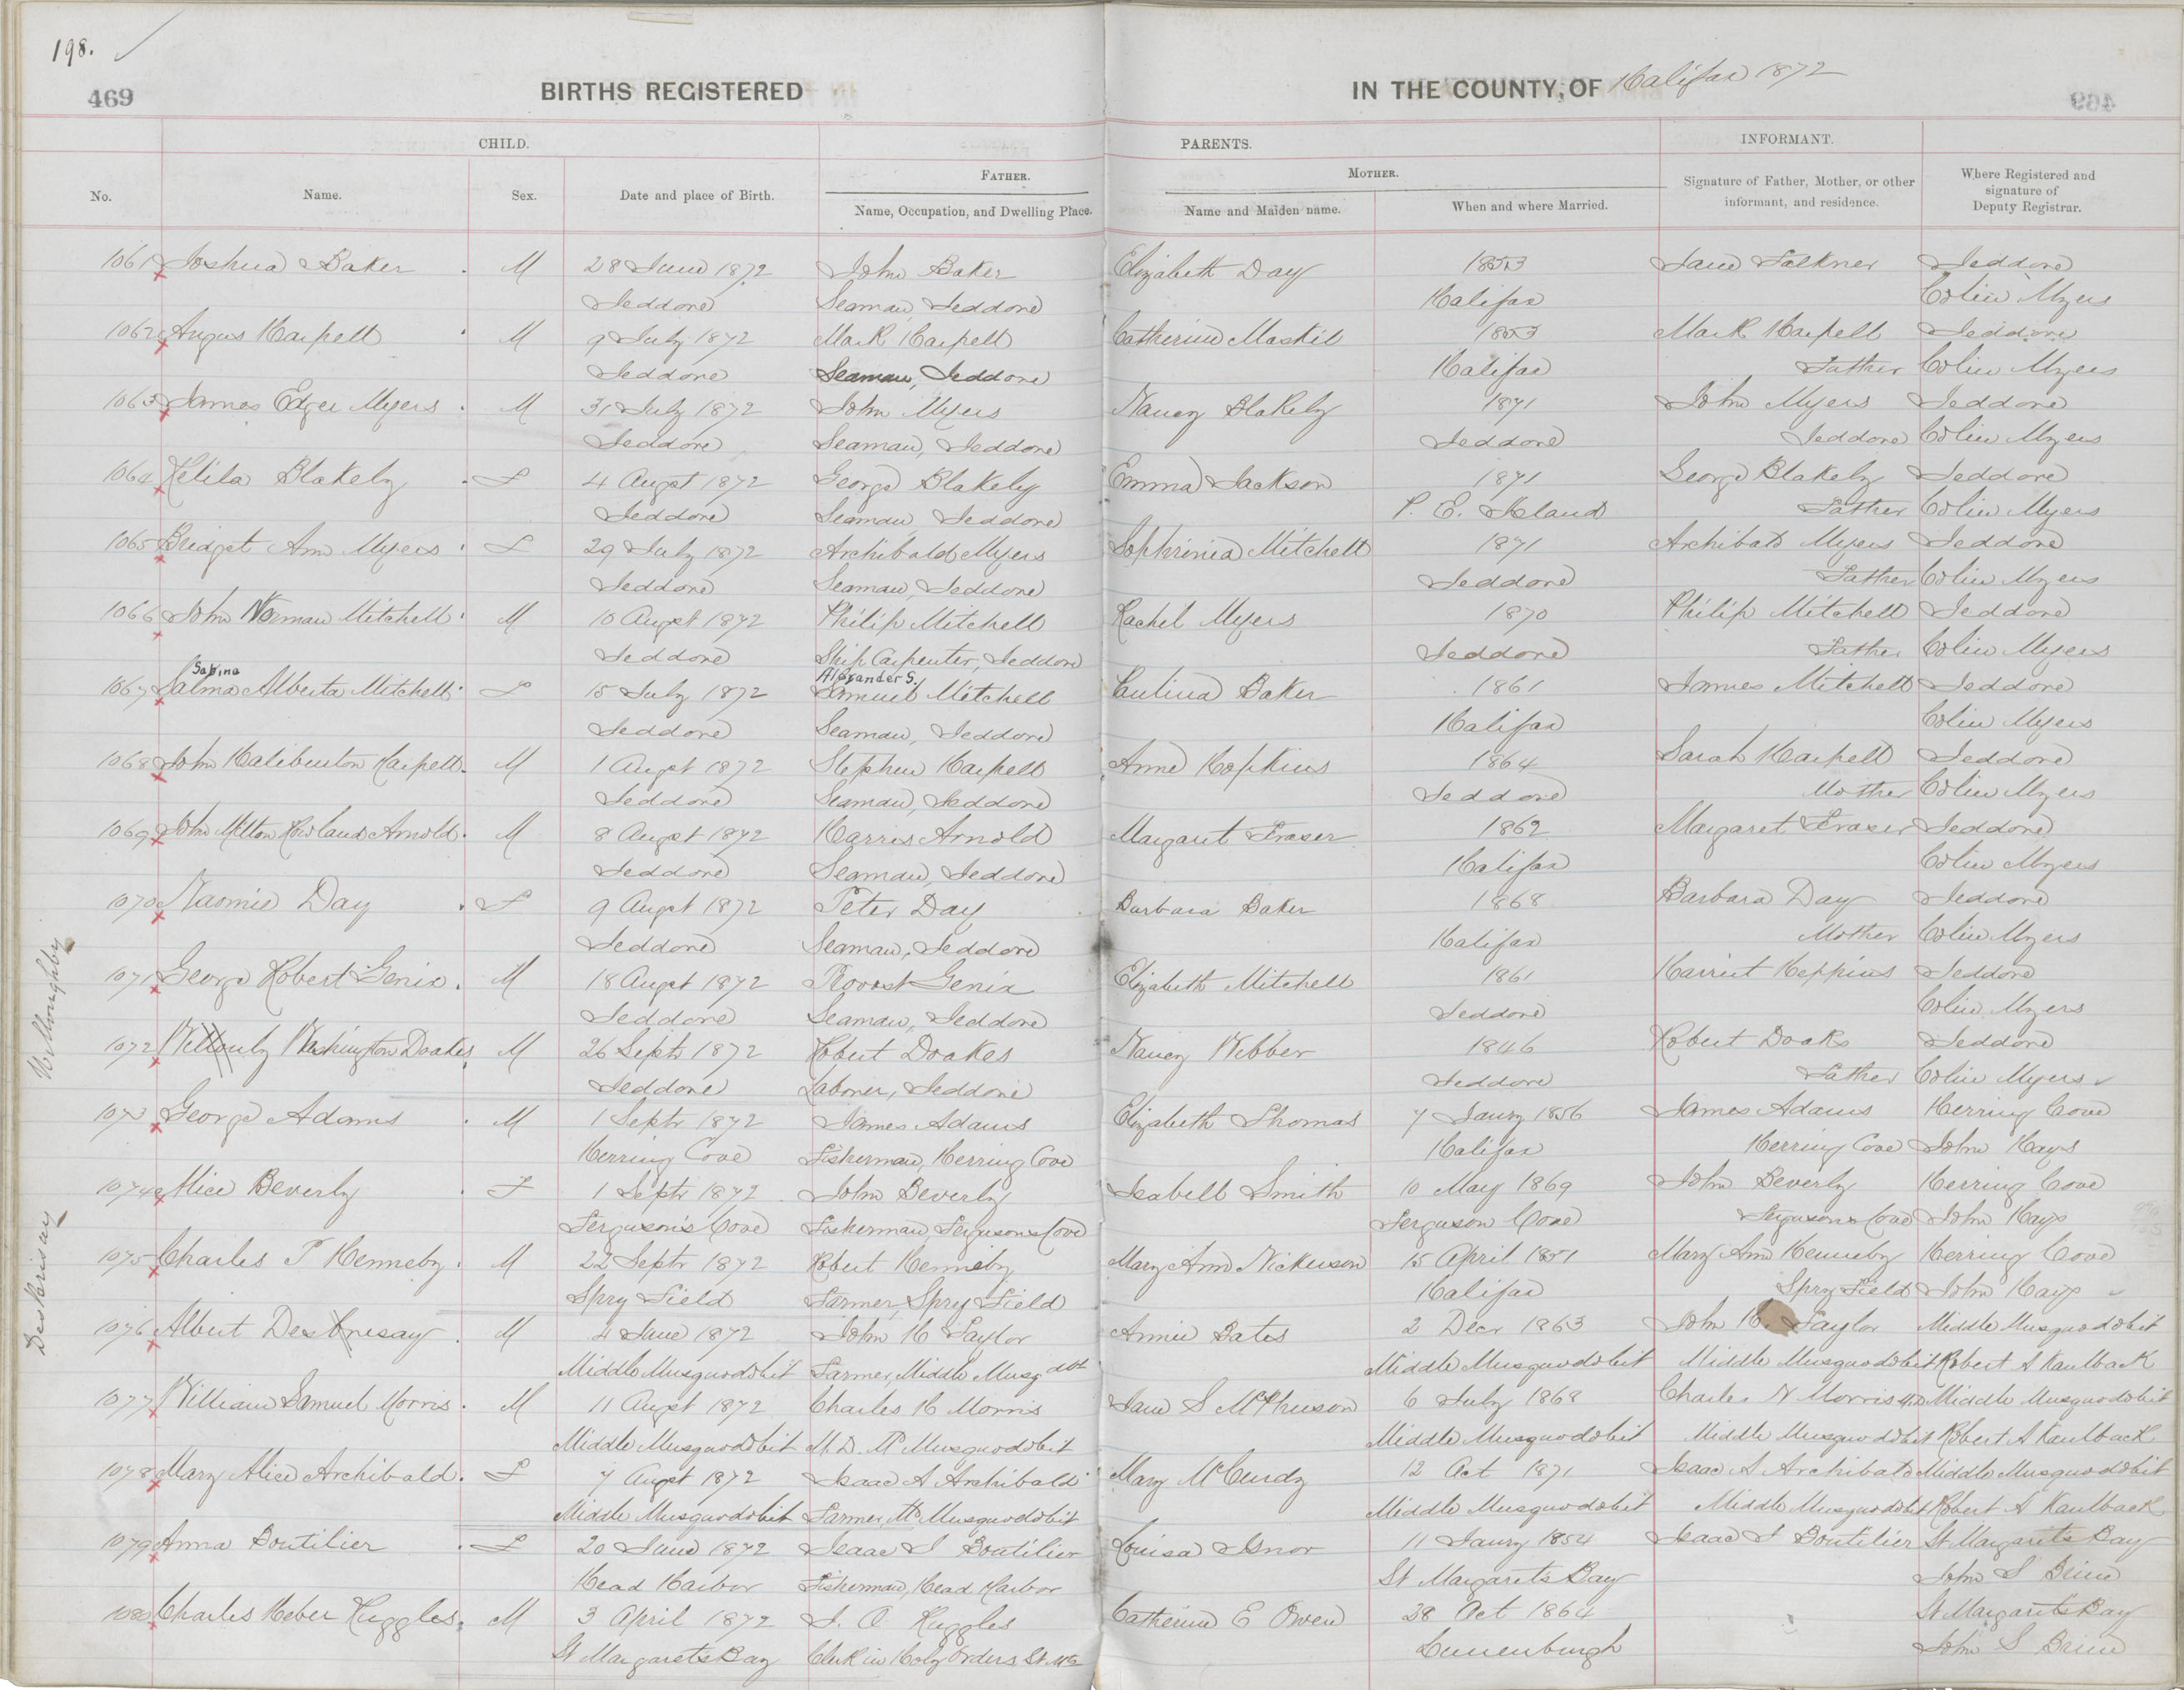 198.
469
BIRTHS REGISTERED IN THE COUNTY, OF Halifax 1872
CHILD. PARENTS. INFORMANT.
No. Name. Sex. Date and place of Birth. FATHER. Name, Occupation, and Dwelling Place. MOTHER. Name and Maiden name. When and where Married. Signature of Father, Mother, or other informant, and residence. Where Registered and signature of Deputy Registrar.
1061 Joshua Baker M 28 June 1872 John Baker Elizabeth Day 1853 Jane Falkner Jeddore
Jeddore Seaman, Jeddore Halifax Colin Myers
1062 Angus Harpell M 9 July 1872 Mark Harpell Catherine Maskil 1853 Mark Harpell Jeddore
Jeddore Seaman, Jeddore Halifax Father Colin Myers
1063 James Edger Myers M 31 July 1872 John Myers Nancy Blakely 1871 John Myers Jeddore
Jeddore Seaman, Jeddore Jeddore Jeddore Colin Myers
1064 Kelila Blakely F 4 Augst 1872 George Blakeley Emma Jackson 1871 George Blakely Jeddore
Jeddore Seaman Jeddore P. E. Island Father Colin Myers
1065 Bridget Ann Myers F 29 July 1872 Archibald Myers Sophrinia Mitchell 1871 Archibald Myers Jeddore
Jeddore Seaman, Jeddore Jeddore Father Colin Myers
1066 John Norman Mitchell M 10 Augst 1872 Philip Mitchell Rachel Myers 1870 Philip Mitchell Jeddore
Jeddore Ship Carpenter, Jeddore Jeddore Father Colin Myers
Sabina Alexander S.
1067 Salma Alberta Mitchell F 15 July 1872 Samuel Mitchell Culina Baker 1861 James Mitchell Jeddore
Jeddore Seaman, Jeddore Halifax Colin Myers
1068 John Haliburton Harpell M 1 Augst 1872 Stephen Harpell Anne Hopkins 1864 Sarah Harpell Jeddore
Jeddore Seaman, Jeddore Jeddore Mother Colin Myers
1069 John Milton Howland Arnold M 8 Augst 1872 Harris Arnold Margaret Fraser 1862 Margaret Fraser Jeddore
Jeddore Seaman, Jeddore Halifax Colin Myers
1070 Naomie Day F 9 Augst 1872 Peter Day Barbara Baker 1868 Barbara Day Jeddore
Jeddore Seaman, Jeddore Halifax Mother Colin Myers
1071 George Robert Genix M 18 Augst 1872 Provost Genix Elizabeth Mitchell 1861 Harriet Heppins Jeddore
Jeddore Seaman, Jeddore Jeddore Colin Myers
Willoughby
1072 Willouly Washington Doakes M 26 Septr 1872 Robert Doakes Nancy Webber 1846 Robert Doaks Jeddore
Jeddore Laborer, Jeddore Jeddore Father Colin Myers
1073 George Adams M 1 Septr 1872 James Adams Elizabeth Thomas 7 Janry 1856 James Adams Herring Cove
Herring Cove Fisherman, Herring Cove Halifax Herring Cove John Hays
1074 Alice Beverly F 1 Septr 1872 John Beverly Isabell Smith 10 May 1869 John Beverly Herring Cove
Ferguson's Cove Fisherman, Fergusons Cove Ferguson Cove Fergusons Cove John Hays
1075 Charles T Henneby M 22 Septr 1872 Robert Henneby Mary Ann Nickerson 15 April 1851 Mary Ann Henneby Herring Cove
Spry Field Farmer, Spry Field Halifax Spry Field John Hays
DesBrisay
1076 Albert Desbresay M 4 June 1872 John H Taylor Annie Bates 2 Decr 1863 John H. Taylor Middle Musquodobit
Middle Musquodobit Farmer, Middle Musqdbt Middle Musquodobit Middle Musquodobit Robert A Kaulback
1077 William Samuel Morris M 11 Augst 1872 Charles H Morris Jane S McPherson 6 July 1868 Charles N Morris MD Middle Musquodobit
Middle Musquodobit M. D. M Musquodobit Middle Musquodobit Middle Musquodobit Robert A Kaulback
1078 Mary Alice Archibald F 7 Augst 1872 Isaac A Archibald Mary McCurdy 12 Oct 1871 Isaac A Archibald Middle Musquodobit
Middle Musquodobit Farmer, M Musquodobit Middle Musquodobit Middle Musquodobit Robert A Kaulback
1079 Anna Boutilier F 20 June 1872 Isaac J Boutilier Louisa Isnor 11 Janry 1854 Isaac J Boutilier St Margarets Bay
Head Harbor Fisherman, Head Harbor St Margarets Bay John S Brine
1080 Charles Heber Ruggles M 3 April 1872 J. O. Ruggles Catherine E Owen 28 Oct 1864 St Margarets Bay
St Margarets Bay Clerk in Holy Orders, St Mgts Lunenburgh John S Brine